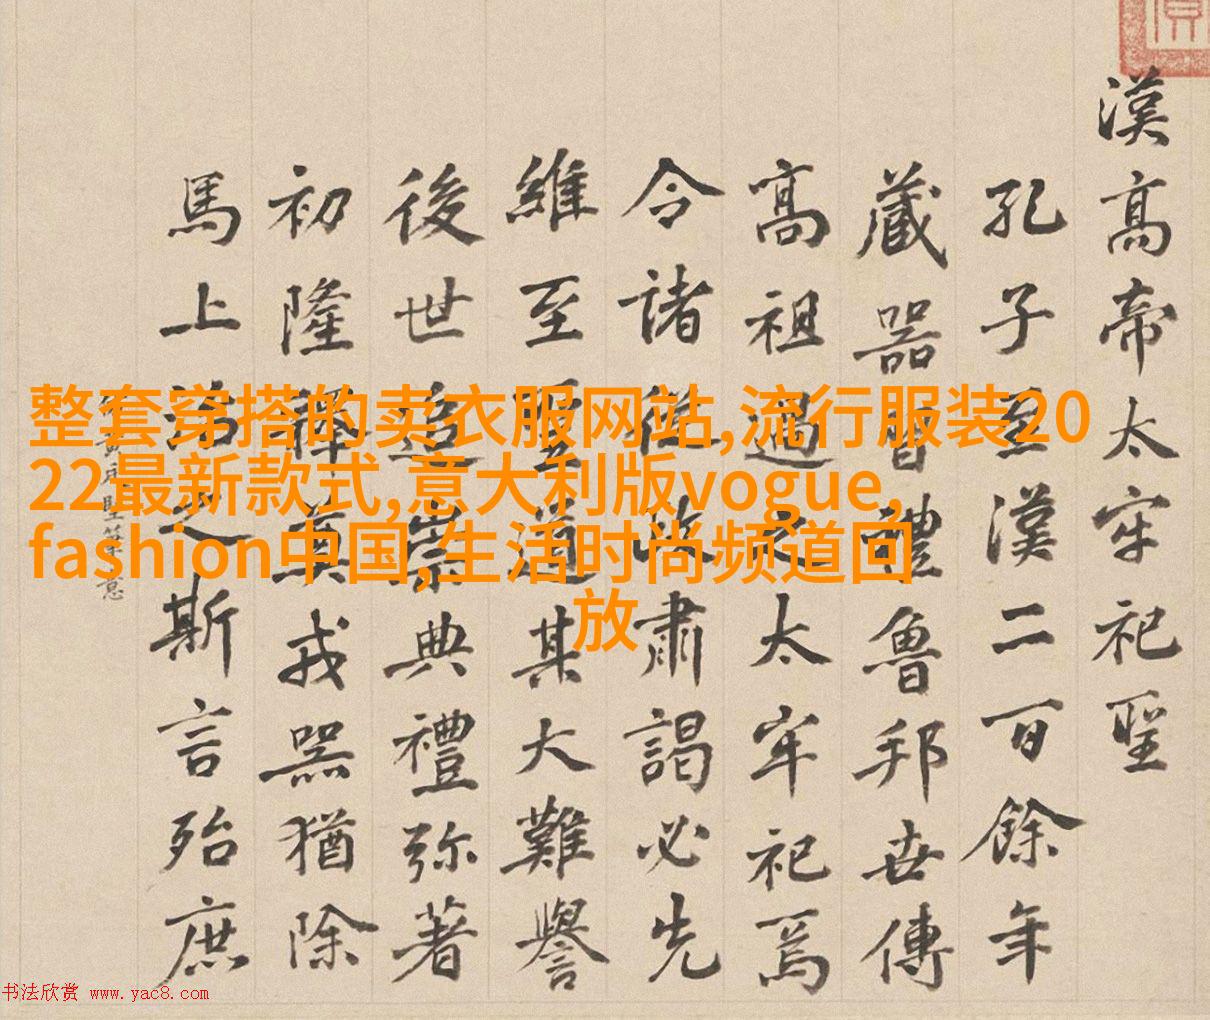 漢高帝太牢祀聖
孔子至漢二百餘年
藏器習禮魯邦世傳
高祖過之太牢祀焉
令諸 肅謁必先
維至聖道其大難譽
後世追崇典禮弥著
初隆釋奠戎器猶除
馬上治之斯言殆庶
意
整套穿搭的卖衣服网站,流行服装20
22最新款式,意大利版vogue,
fashion中国,生活时尚频道回
放
书法欣赏 www.yac8.com